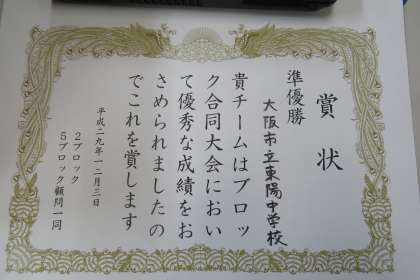 賞状
準優勝
大阪市立東陽中学校
貴チームはブロッ
ク合同大会におい
て優秀な成績をお
さめられましたの
でこれを賞します
平成二九年一二月三日
２ブロック
５ブロック顧問一同